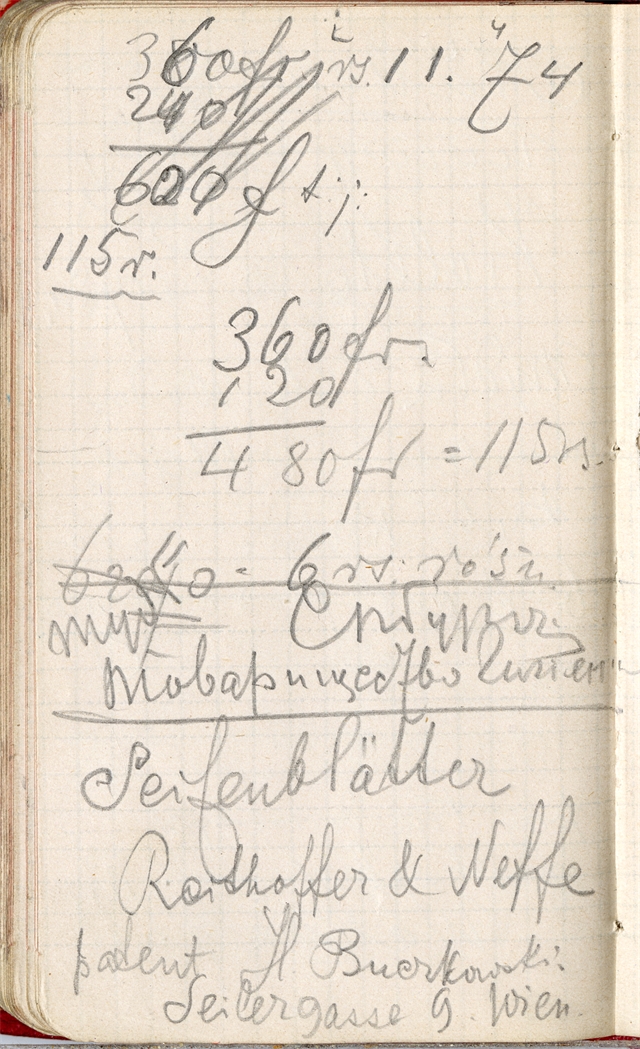 360 fr rs. 11. 74
240
620 f
115 r.
360 fr.
120
480 fr = 115 rs.
6 rs.
Товарищество
Seifenblätter
Roithoffer & Neffe
patent H Buczkowski:
Seilergasse 9. Wien.